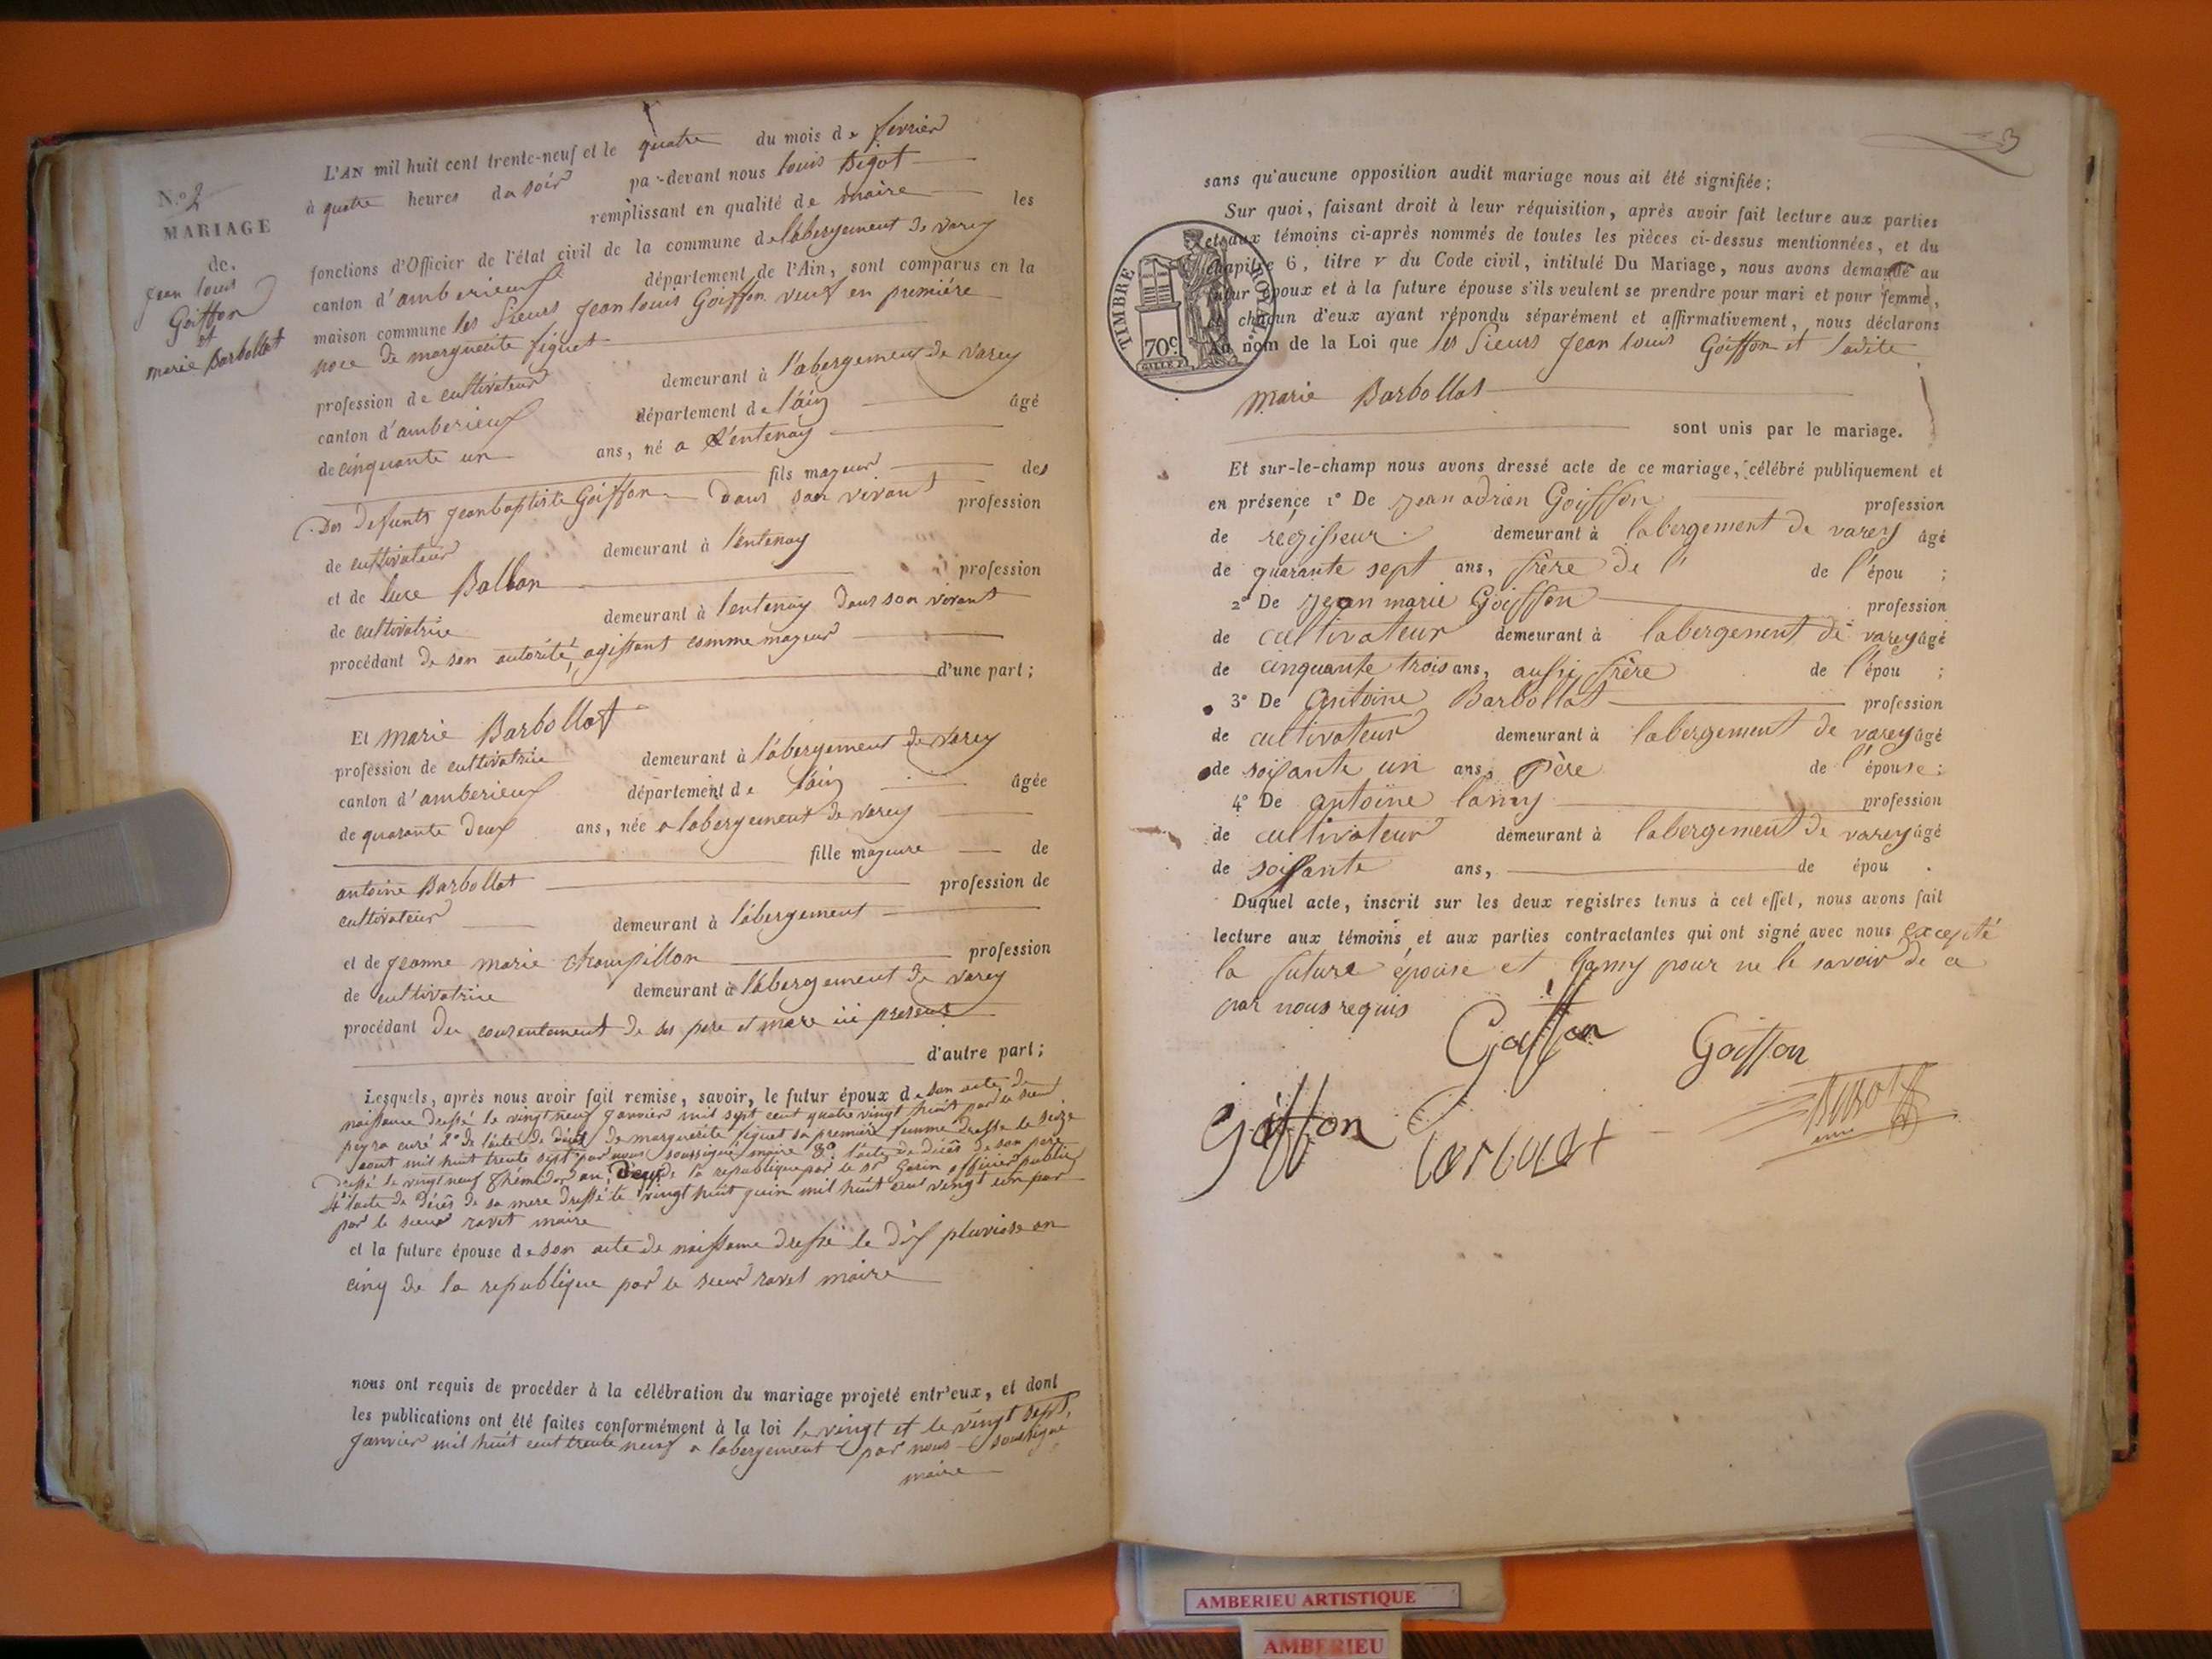 N.º 2
MARIAGE
de
jean louis
Goiffon
et
marie Barbollat
L'AN mil huit cent trente-neuf et le quatre du mois de fevrier
à quatre heures du soir par-devant nous louis Bigot
remplissant en qualité de maire les
fonctions d'Officier de l'état civil de la commune de labergement de varey
canton d'amberieux département de l'Ain, sont comparus en la
maison commune les sieurs jean louis Goiffon veuf en premiére
noce de marguerite figuet
profession de cultivateur demeurant à l'abergement de varey
canton d'amberieux département de l'ain âgé
de cinquante un ans, né a l'entenay
fils majeur des
Des defunts jean baptiste Goiffon dans son vivant profession
de cultivateur demeurant à lentenay
et de luce Ballon profession
de cultivatrice demeurant à lentenay dans son vivant
procédant de son autorité, agissant comme majeur
d'une part;
Et marie Barbollat
profession de cultivatrice demeurant à l'abergement de varey
canton d'amberieux département de l'ain âgée
de quarante deux ans, née a labergement de varey
fille majeure de
antoine Barbollat profession de
cultivateur demeurant à l'abergement
et de jeanne marie champillon profession
de cultivatrice demeurant à l'abergement de varey
procédant du consentement de ses pere et mere ici presens
d'autre part;
Lesquels, après nous avoir fait remise, savoir, le futur époux de son acte de
naissance dressé le vingt neuf janvier mil sept cent quatre vingt huit par le sieur
peyra curé 2º de l'acte de décès de marguerite figuet sa premiére femme dressé le seize
aout mil huit trente sept par nous soussigné maire 3º l'acte de décès de son pere
dressé le vingt neuf thermidor an de la republique par le sr Garin officier public
4º l'acte de décès de sa mere dressé le vingt huit juin mil huit cent vingt un par
par le sieur ravet maire
et la future épouse de son acte de naissance dressé le dix pluviose an
cinq de la republique par le sieur ravet maire
nous ont requis de procéder à la célébration du mariage projeté entr'eux, et dont
les publications ont été faites conformément à la loi le vingt et le vingt sept,
janvier mil huit cent trente neuf a labergement par nous soussigné
maire
3
sans qu'aucune opposition audit mariage nous ait été signifiée;
Sur quoi, faisant droit à leur réquisition, après avoir fait lecture aux parties
et aux témoins ci-après nommés de toutes les pièces ci-dessus mentionnées, et du
chapitre 6, titre v du Code civil, intitulé Du Mariage, nous avons demandé au
futur époux et à la future épouse s'ils veulent se prendre pour mari et pour femme,
et chacun d'eux ayant répondu séparément et affirmativement, nous déclarons
Au nom de la Loi que les sieurs jean louis Goiffon et ladite
TIMBRE ROYAL
70c.
marie Barbollat
sont unis par le mariage.
Et sur-le-champ nous avons dressé acte de ce mariage, célébré publiquement et
en présence 1º De jean adrien Goiffon profession
de régisseur demeurant à labergement de varey âgé
de quarante sept ans, frère de l' de l'épou ;
2º De jean marie Goiffon profession
de cultivateur demeurant à labergement de varey âgé
de cinquante trois ans, aussi frère de l'épou ;
3º De Antoine Barbollat profession
de cultivateur demeurant à labergement de varey âgé
de soixante un ans, Père de l'épouse;
4º De antoine lamy profession
de cultivateur demeurant à labergement de varey âgé
de soixante ans, de épou .
Duquel acte, inscrit sur les deux registres tenus à cet effet, nous avons fait
lecture aux témoins et aux parties contractantes qui ont signé avec nous excepté
la future épouse et lamy pour ne le savoir de ce
par nous requis
Goiffon Goiffon
Goiffon
AMBERIEU ARTISTIQUE
AMBERIEU